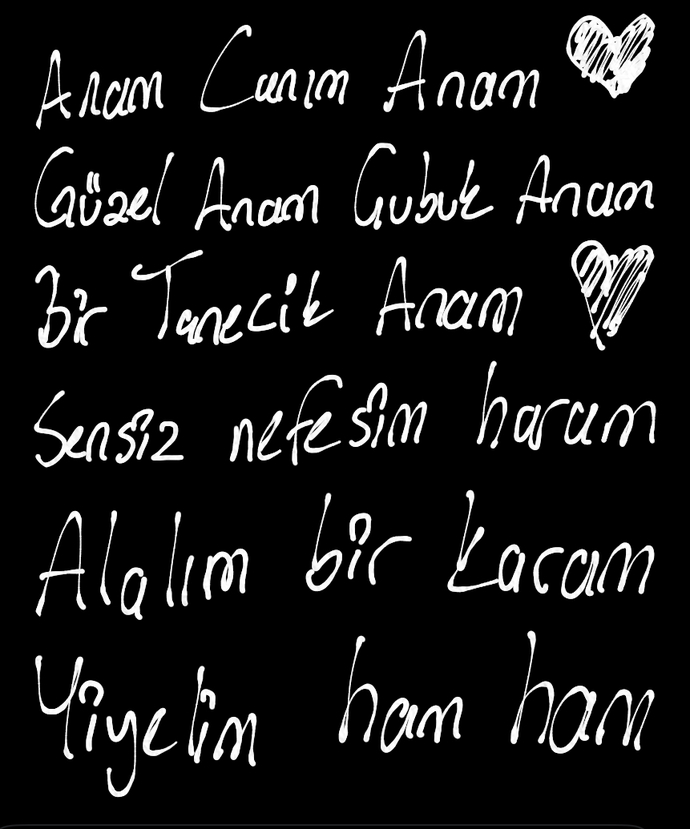 Anam Canım Anam
Güzel Anam Gubuk Anam
Bir Tanecik Anam
Sensiz nefesim haram
Alalım bir karam
Yiyelim ham ham